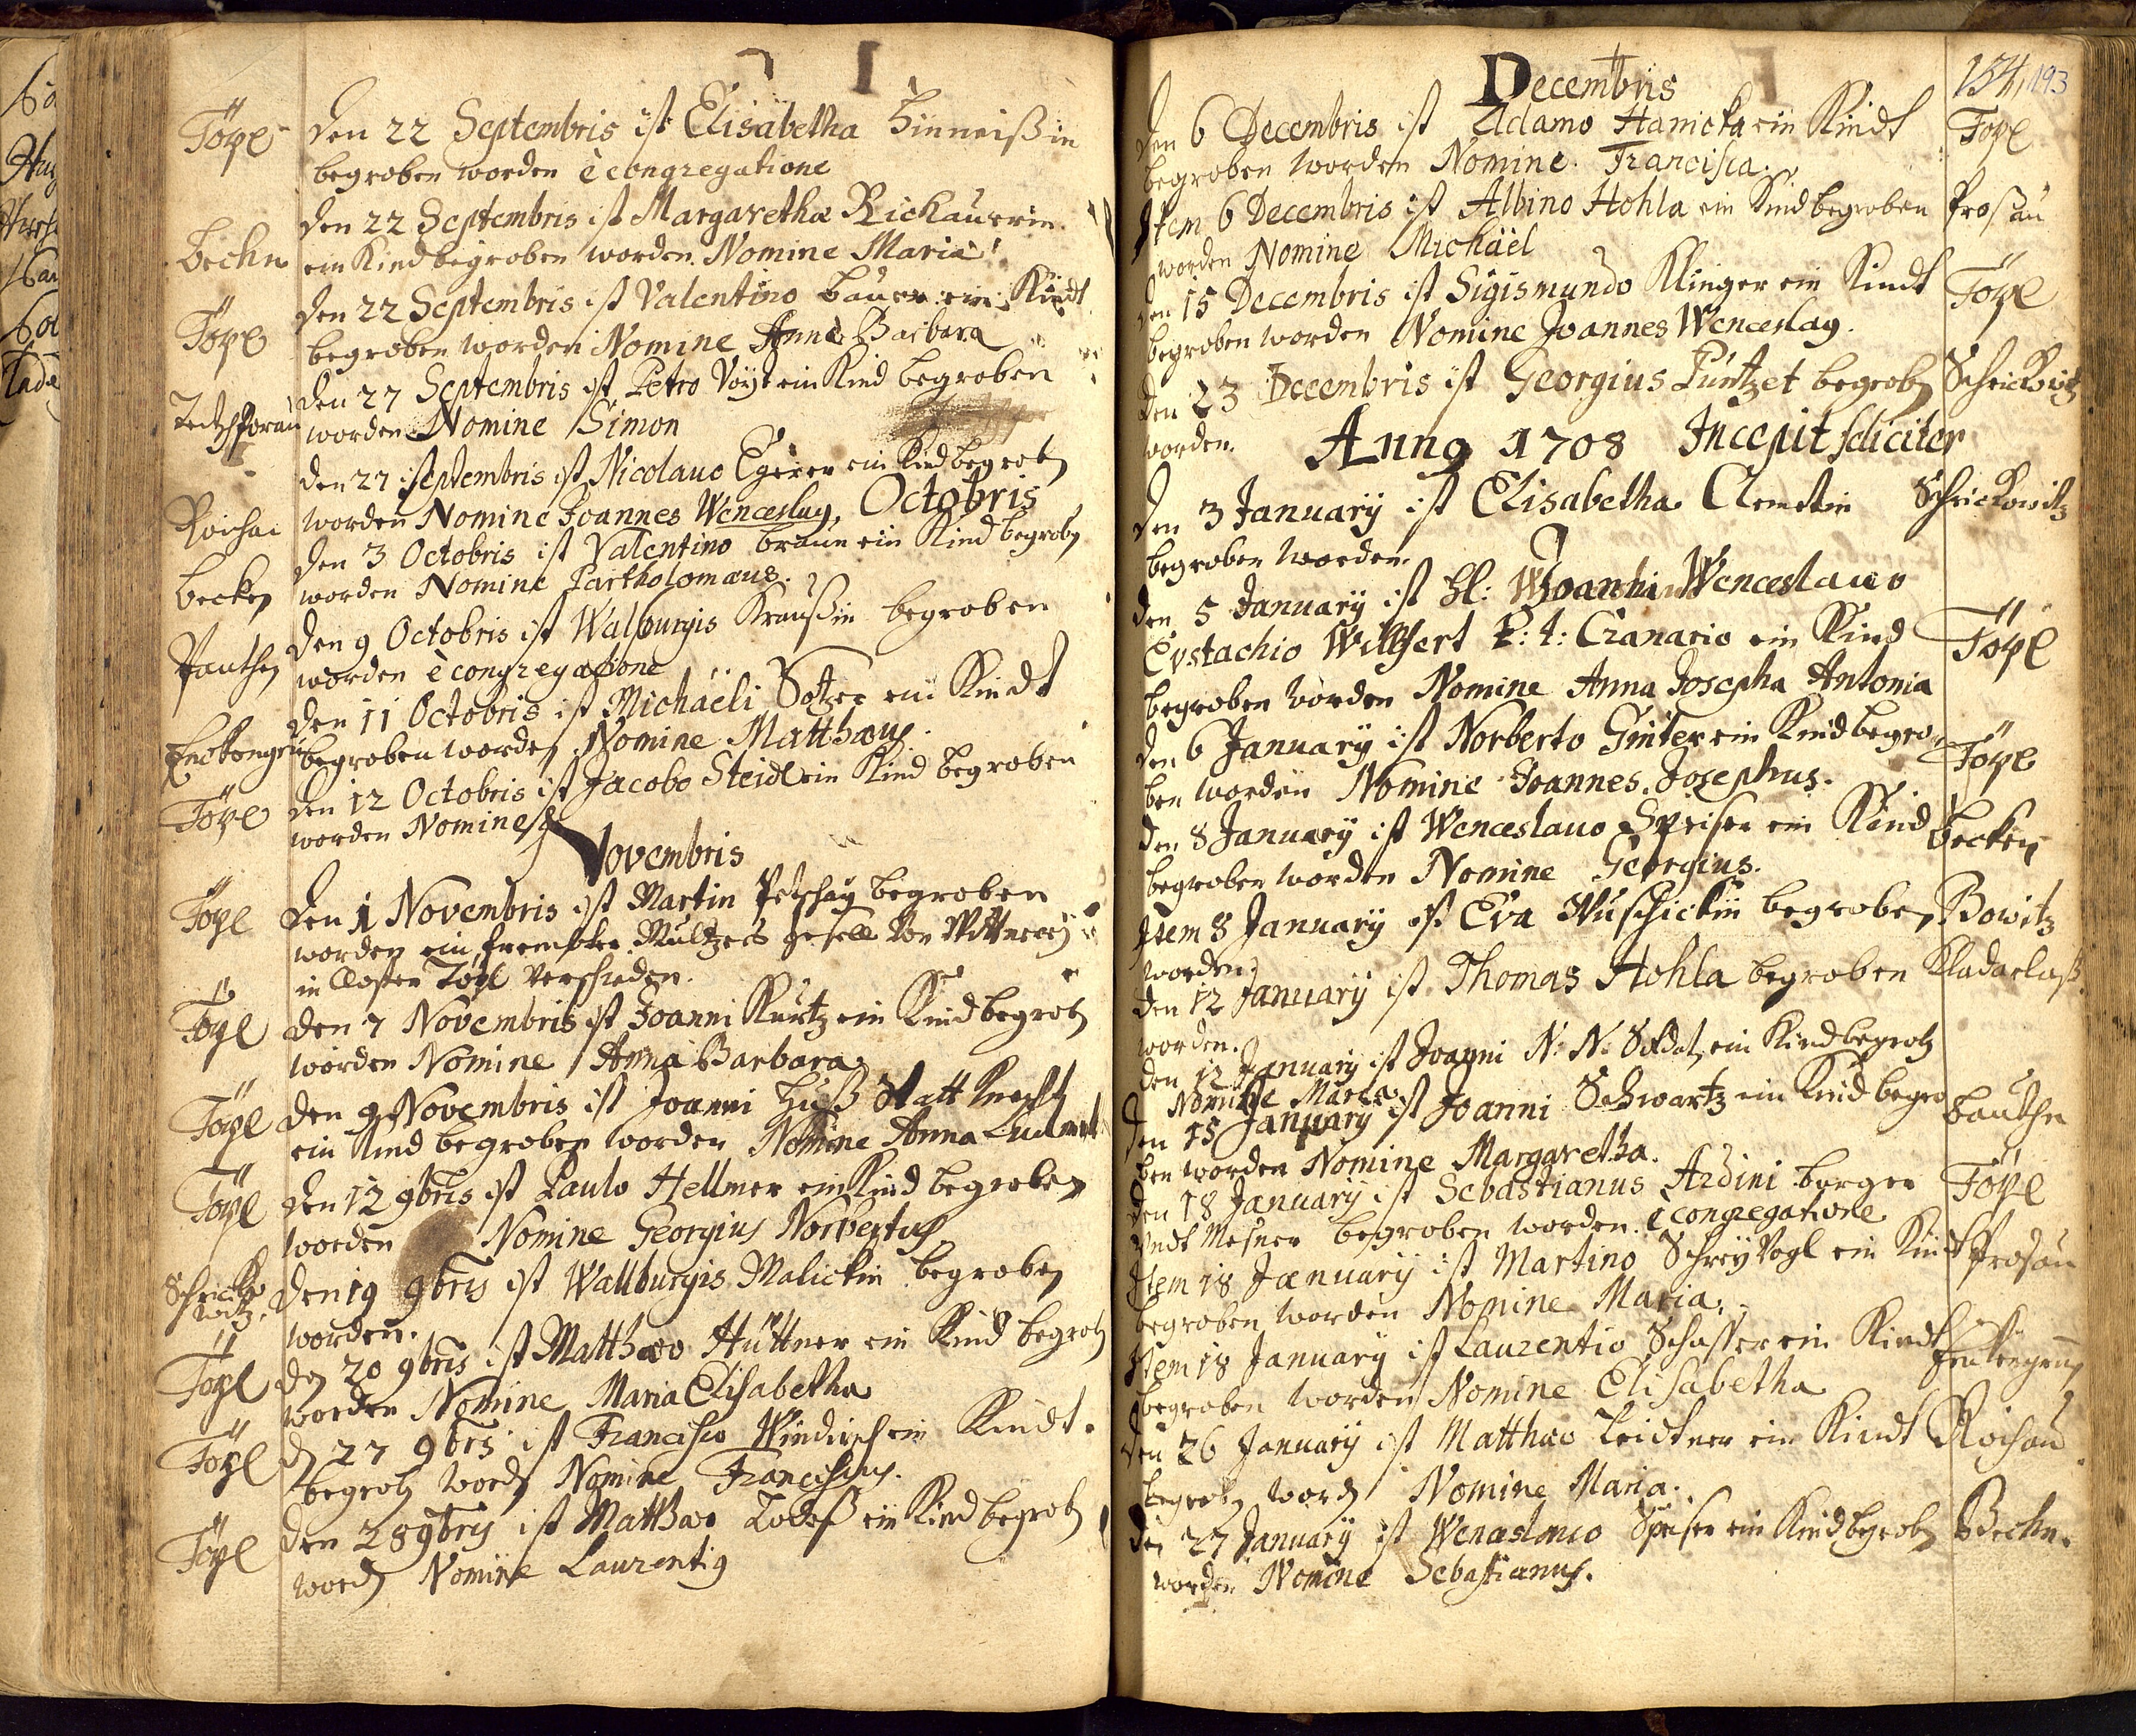 Töpl
den 22 Septembris ist Elisäbetha Hinneißin
begroben worden è congregatione
den 22 Septembris ist Margaretha Rickauerin
Beckn
ein Kind begroben worden Nomine Maria
den 22 Septembris ist Valentino Bauer ein Kindt
Töpl
begroben worden Nomine Anna Barbara
den 27 Septembris ist Petro Voÿt ein Kind begroben
worden Nomine Simon
den 27 septembris ist Nicolauo Egerer ein Kind begrobn
Roichau
worden Nomine Joannes Wenceslaus, Octobris
den 3 Octobris ist Valentino Braun ein Kind begrobn
Becken
worden Nomine Partholomæus.
den 9 Octobris ist Walburgis Kraußin begroben
Pauthen
worden è congregatione
den 11 Octobris ist Michäeli Sötzer ein Kindt
begroben worden Nomine Matthæus.
Töpl
den 12 Octobris ist Jacobo Steidl ein Kind begroben
worden Nomine
Novembris
Töpl
den 1 Novembris ist Martin Petschau begroben
worden ein frembter Multzers gesell von
in Closter Töpl verschieden.
Töpl
den 7 Novembris ist Joanni Kurtz ein Kind begrobn
worden Nomine Anna Barbara
Töpl
den 9 Novembris ist Joanni Huß Statt Knecht
ein Kind begroben worden Nomine Anna
Töpl
den 12 9bris ist Paulo Hellmer ein Kind begroben
worden Nomine Georgius Norbertus
Schricko
witz.
den 19 9bris ist Wallburgis Malickin begroben
worden.
Töpl
den 20 9bris ist Matthæo Hüttner ein Kind begrobn
worden Nomine Maria Elisabetha
Töpl
dn 27 9bris ist Francisco Windisch ein Kindt
begrobn wordn Nomine Franciscus.
Töpl
den 28 9bris ist Matthæo Lodes ein Kind begrobn
wordn Nomine Laurentius
Decembris
154, 193
den 6 Decembris ist Adamo Hanicka ein Kindt
Töpl
begroben worden Nomine Francisca.
Item 6 Decembris ist Albino Hohla ein Kind begroben
Prosau
worden Nomine Michäel
den 15 Decembris ist Sigismundo Klinger ein Kindt
Töpl
begroben worden Nomine Joannes Wenceslaus.
den 23 Decembris ist Georgius Püntzet begrobn
Schrickowitz
worden. Anno 1708 Incepit feliciter
den 3 Januarÿ ist Elisabetha Clemetin
Schrickowitz
begroben worden.
den 5 Januarÿ ist Hl: Joanni Wenceslauo
Eustachio Willfert p: t: Granario ein Kind
Töpl
begroben worden Nomine Anna Josepha Antonia
den 6 Januarÿ ist Norberto Ginter ein Kind begro
Töpl
ben worden Nomine Joannes Josephus.
den 8 Januarÿ ist Wenceslauo Speiser ein Kind
Becken
begroben worden Nomine Georgius.
Item 8 Januarÿ ist Eva Wuschickin begroben
Bowitz
worden.
den 12 Januarÿ ist Thomas Hohla begroben
Kladarlaß
worden.
den 12 Januarÿ ist Joanni N: N: Soldat, ein Kind begrobn
Nomine Maria
den 15 Januarÿ ist Joanni Schwartz ein Kind begro
Bauthn
ben worden Nomine Margaretha.
den 18 Januarÿ ist Sebastianus Ardini Borger
Töpl
undt Mesner begroben worden. è congregatione
Item 18 Januarÿ ist Martino Schreÿ Vogl ein Kindt
Prosau
begroben worden Nomine Maria.
Item 18 Januarÿ ist Laurentio Schaffer ein Kindt
begroben worden Nomine Elisabetha
den 26 Januarÿ ist Matthæo Leidtner ein Kindt
Roichau
begrobn wordn Nomine Maria.
den 27 Januarÿ ist Wenceslauo Speiser ein Kind begrobn
Beckn.
worden Nomine Sebastianus.